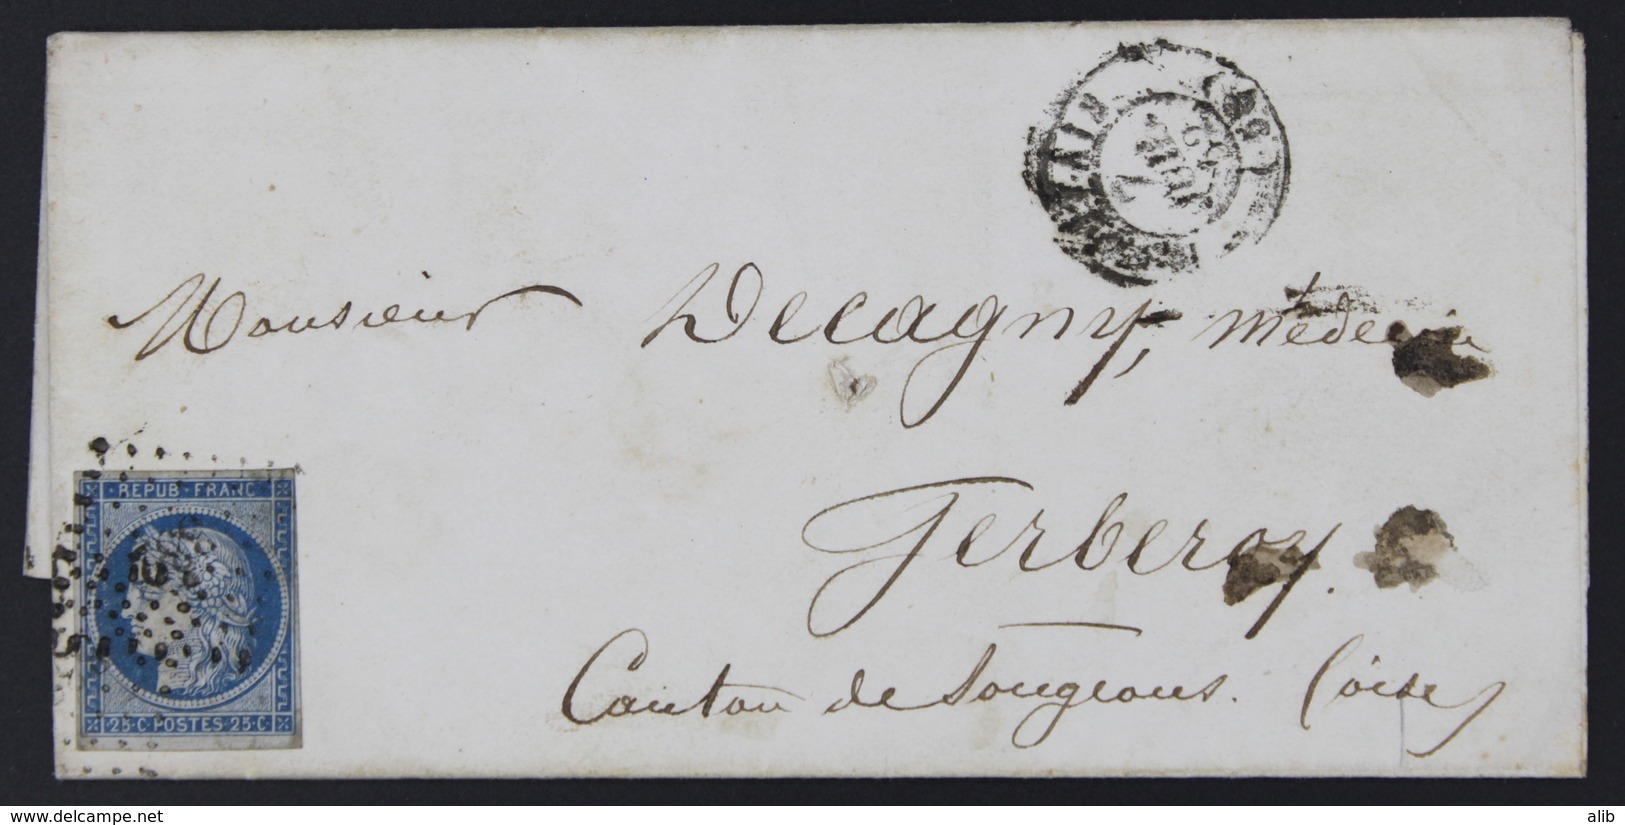 Monsieur Decagny, médecin
Gerberoy.
Canton de Songeons. (oise)
REPUB · FRANC
25·C·POSTES·25·C·
www.delcampe.net
alib